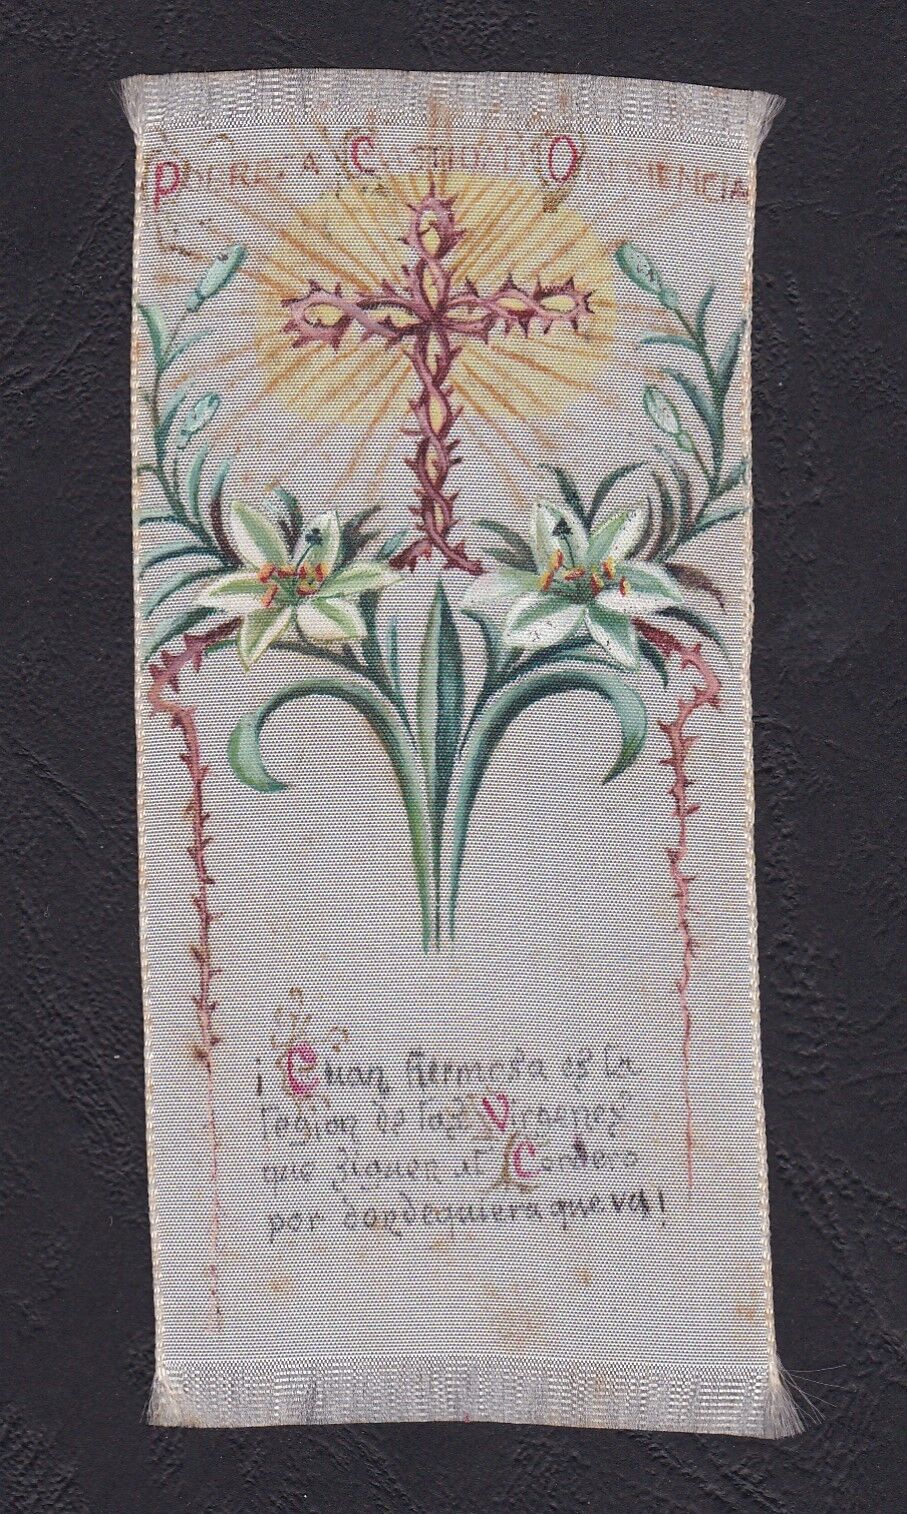 POBREZA CASTIDAD OBEDIENCIA
¡Cuan hermosa es la
region de las Virgenes
que siguen al Cordero
por dondequiera que va!